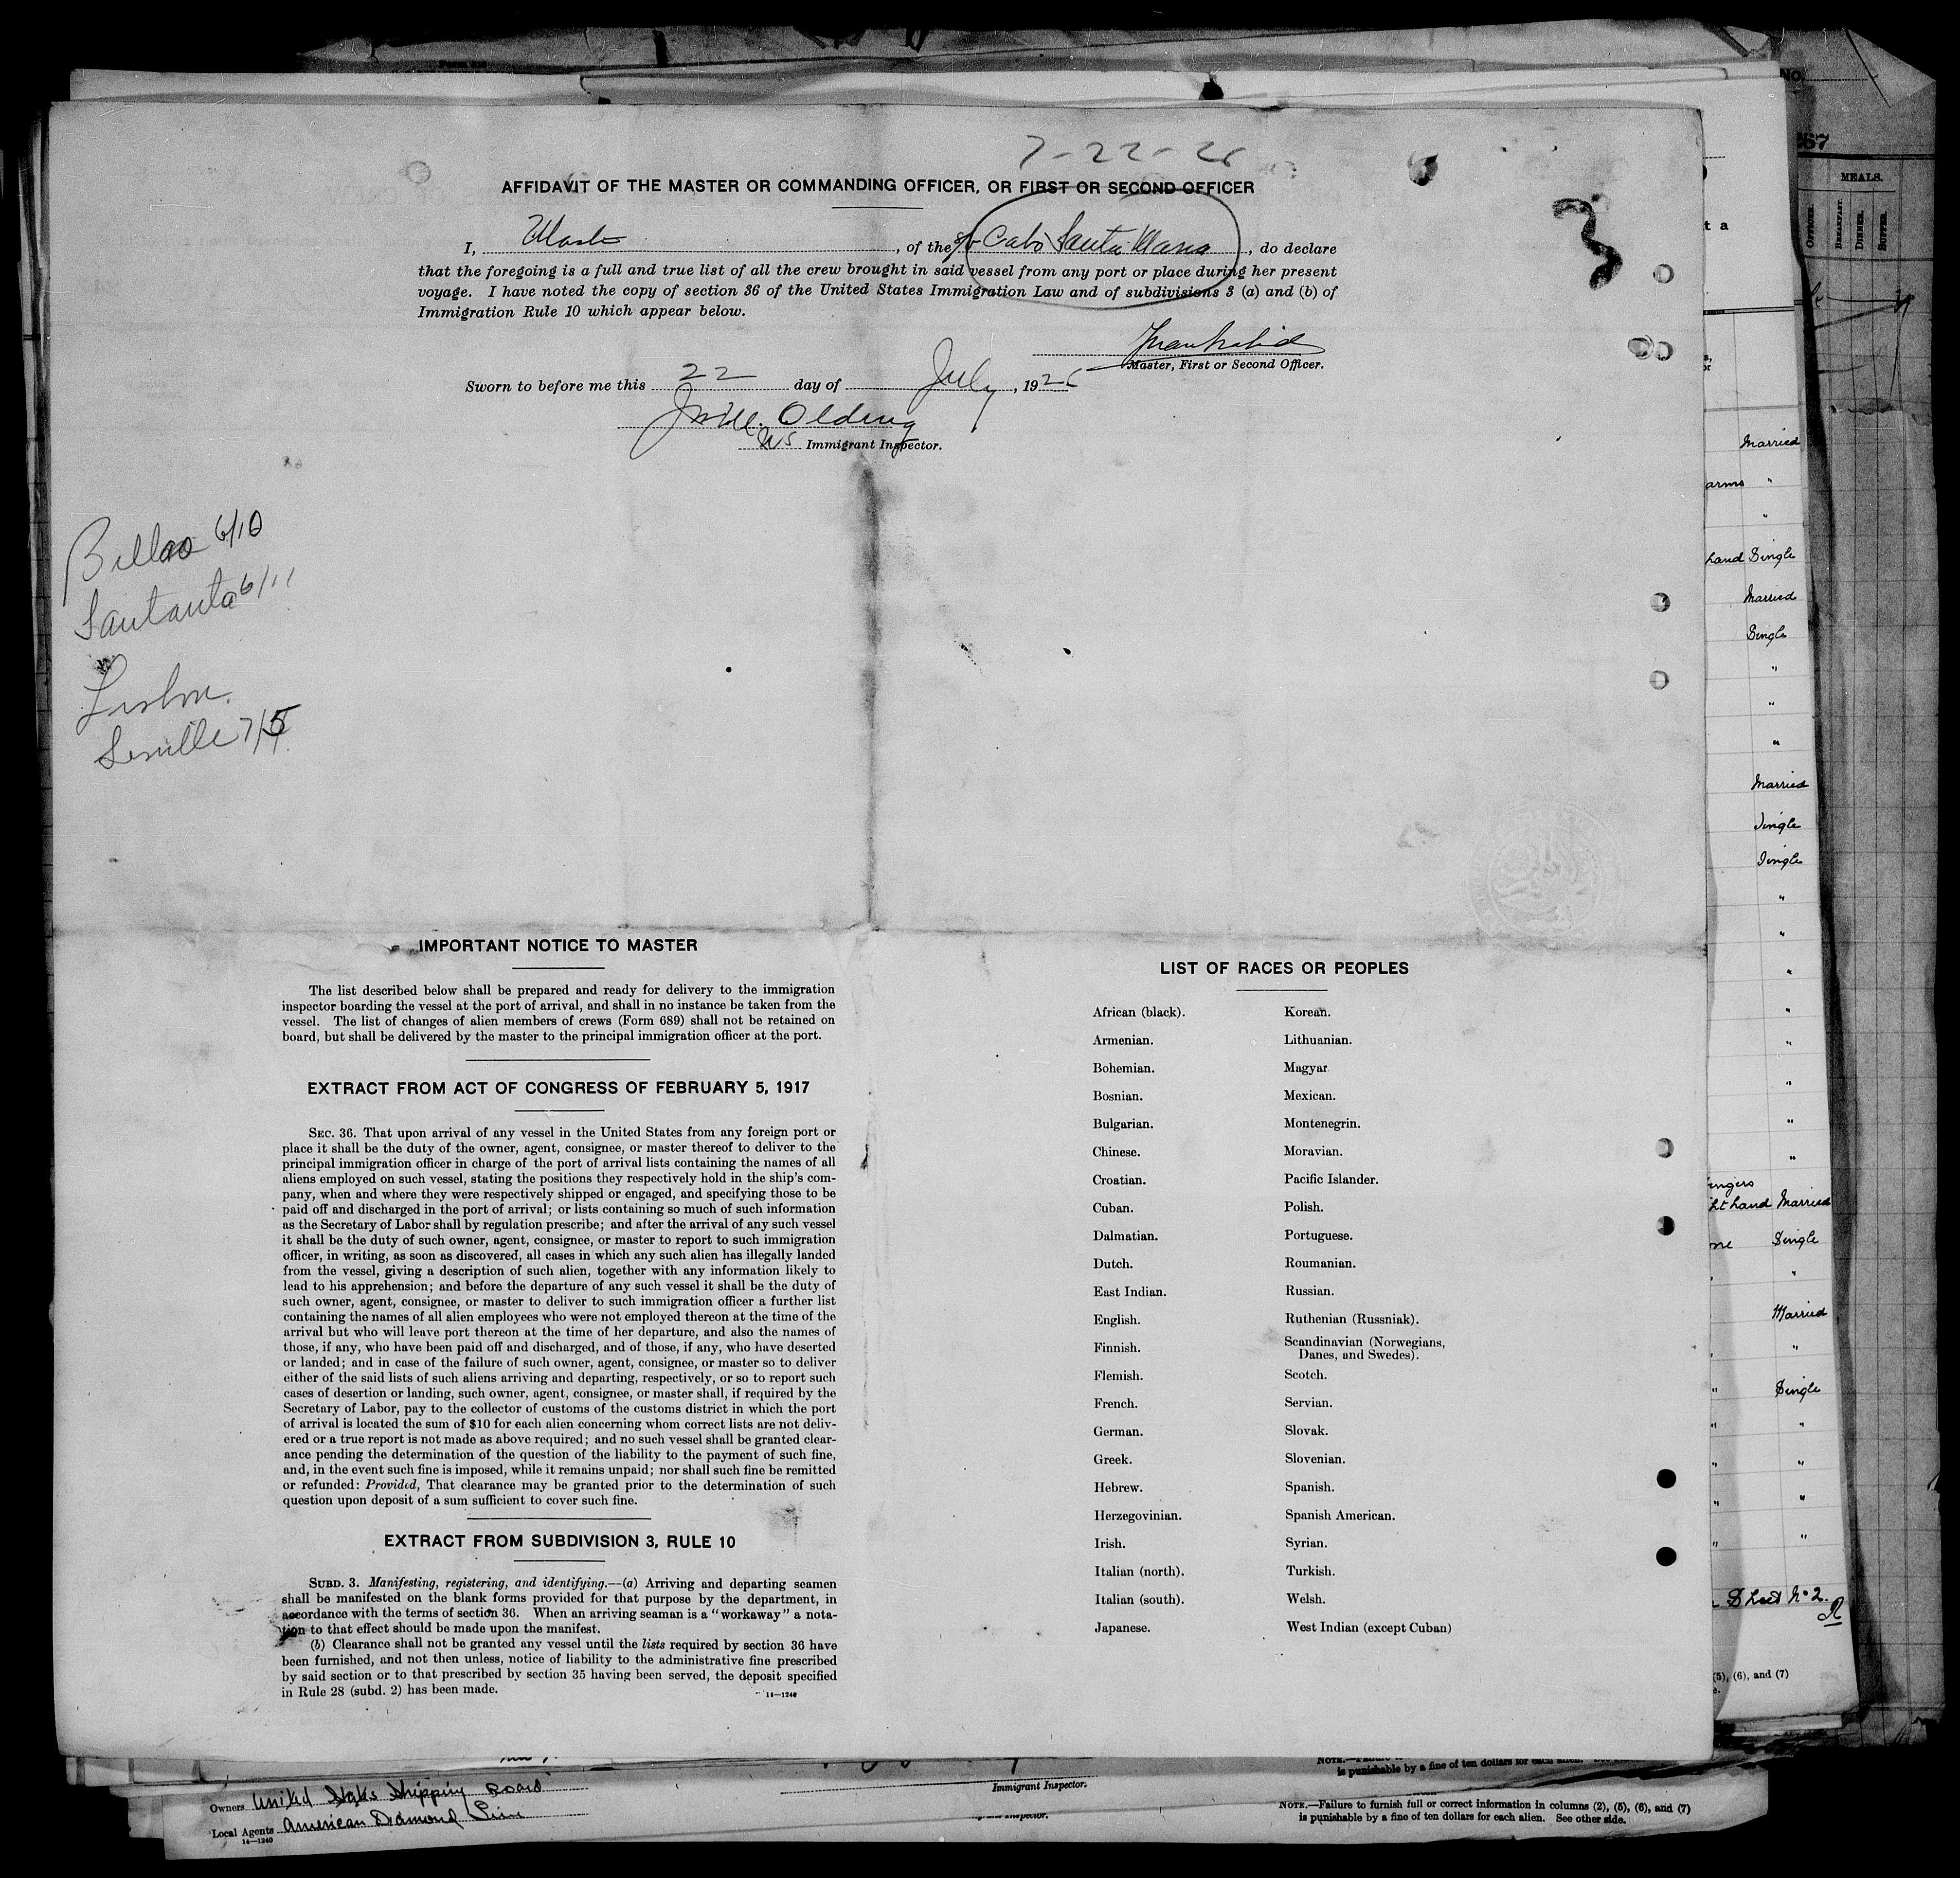 7-22-26
AFFIDAVIT OF THE MASTER OR COMMANDING OFFICER, OR FIRST OR SECOND OFFICER
I, Master, of the S/S Cabo Santa Maria, do declare
that the foregoing is a full and true list of all the crew brought in said vessel from any port or place during her present
voyage. I have noted the copy of section 36 of the United States Immigration Law and of subdivisions 3 (a) and (b) of
Immigration Rule 10 which appear below.
Master, First or Second Officer.
Sworn to before me this 22 day of July, 1926
Olding
US Immigrant Inspector.
3
Bilbao 6/10
Santanta 6/11
Lisbon.
Seville 7/5
IMPORTANT NOTICE TO MASTER
The list described below shall be prepared and ready for delivery to the immigration
inspector boarding the vessel at the port of arrival, and shall in no instance be taken from the
vessel. The list of changes of alien members of crews (Form 689) shall not be retained on
board, but shall be delivered by the master to the principal immigration officer at the port.
EXTRACT FROM ACT OF CONGRESS OF FEBRUARY 5, 1917
SEC. 36. That upon arrival of any vessel in the United States from any foreign port or
place it shall be the duty of the owner, agent, consignee, or master thereof to deliver to the
principal immigration officer in charge of the port of arrival lists containing the names of all
aliens employed on such vessel, stating the positions they respectively hold in the ship's com-
pany, when and where they were respectively shipped or engaged, and specifying those to be
paid off and discharged in the port of arrival; or lists containing so much of such information
as the Secretary of Labor shall by regulation prescribe; and after the arrival of any such vessel
it shall be the duty of such owner, agent, consignee, or master to report to such immigration
officer, in writing, as soon as discovered, all cases in which any such alien has illegally landed
from the vessel, giving a description of such alien, together with any information likely to
lead to his apprehension; and before the departure of any such vessel it shall be the duty of
such owner, agent, consignee, or master to deliver to such immigration officer a further list
containing the names of all alien employees who were not employed thereon at the time of the
arrival but who will leave port thereon at the time of her departure, and also the names of
those, if any, who have been paid off and discharged, and of those, if any, who have deserted
or landed; and in case of the failure of such owner, agent, consignee, or master so to deliver
either of the said lists of such aliens arriving and departing, respectively, or so to report such
cases of desertion or landing, such owner, agent, consignee, or master shall, if required by the
Secretary of Labor, pay to the collector of customs of the customs district in which the port
of arrival is located the sum of $10 for each alien concerning whom correct lists are not deliv-
ered or a true report is not made as above required; and no such vessel shall be granted clear-
ance pending the determination of the question of the liability to the payment of such fine,
and, in the event such fine is imposed, while it remains unpaid; nor shall such fine be remitted
or refunded: Provided, That clearance may be granted prior to the determination of such
question upon deposit of a sum sufficient to cover such fine.
EXTRACT FROM SUBDIVISION 3, RULE 10
SUBD. 3. Manifesting, registering, and identifying.—(a) Arriving and departing seamen
shall be manifested on the blank forms provided for that purpose by the department, in
accordance with the terms of section 36. When an arriving seaman is a "workaway" a nota-
tion to that effect should be made upon the manifest.
(b) Clearance shall not be granted any vessel until the lists required by section 36 have
been furnished, and not then unless, notice of liability to the administrative fine prescribed
by said section or to that prescribed by section 35 having been served, the deposit specified
in Rule 28 (subd. 2) has been made.
14—1240
LIST OF RACES OR PEOPLES
African (black).
Armenian.
Bohemian.
Bosnian.
Bulgarian.
Chinese.
Croatian.
Cuban.
Dalmatian.
Dutch.
East Indian.
English.
Finnish.
Flemish.
French.
German.
Greek.
Hebrew.
Herzegovinian.
Irish.
Italian (north).
Italian (south).
Japanese.
Korean.
Lithuanian.
Magyar
Mexican.
Montenegrin.
Moravian.
Pacific Islander.
Polish.
Portuguese.
Roumanian.
Russian.
Ruthenian (Russniak).
Scandinavian (Norwegians,
Danes, and Swedes).
Scotch.
Servian.
Slovak.
Slovenian.
Spanish.
Spanish American.
Syrian.
Turkish.
Welsh.
West Indian (except Cuban)
No.
267
MEALS.
OFFICER.
BREAKFAST.
DINNER.
SUPPER.
t a
Married
arms "
"
hand Single
Married
Single
"
"
"
Married
Single
Single
"
"
"
"
"
"
"
"
ingers
ht hand Married
Single
"
Married
"
" Single
" "
" "
" "
" "
Sheet No 2.
(5), (6), and (7)
Owners United States Shipping Board
Local Agents American Diamond Line
14—1240
Immigrant Inspector.
is punishable by a fine of ten dollars for each alien.
NOTE.—Failure to furnish full or correct information in columns (2), (5), (6), and (7)
is punishable by a fine of ten dollars for each alien. See other side.